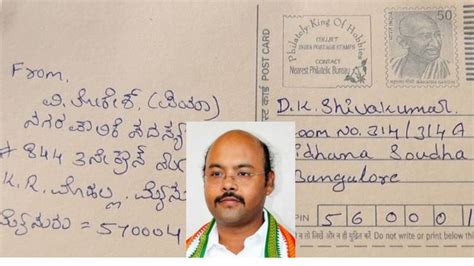 From,
ವಿ.ಲೋಕೇಶ್, (ಪಿಯಾ)
ನಗರಪಾಲಿಕೆ ಸದಸ್ಯ
# 844 3ನೇ ಕ್ರಾಸ್
K.R. ಮೊಹಲ್ಲ. ಮೈಸೂ
ಮೈಸೂರು = 570004
Philately-King Of Hobbies
COLLECT
INDIA POSTAGE STAMPS
CONTACT
Nearest Philatelic Bureau
POST CARD
50
D.K. Shivakumar
oom No. 314/314A
idhana Soudha
Bangalore
PIN 56000
Do not write or print below this